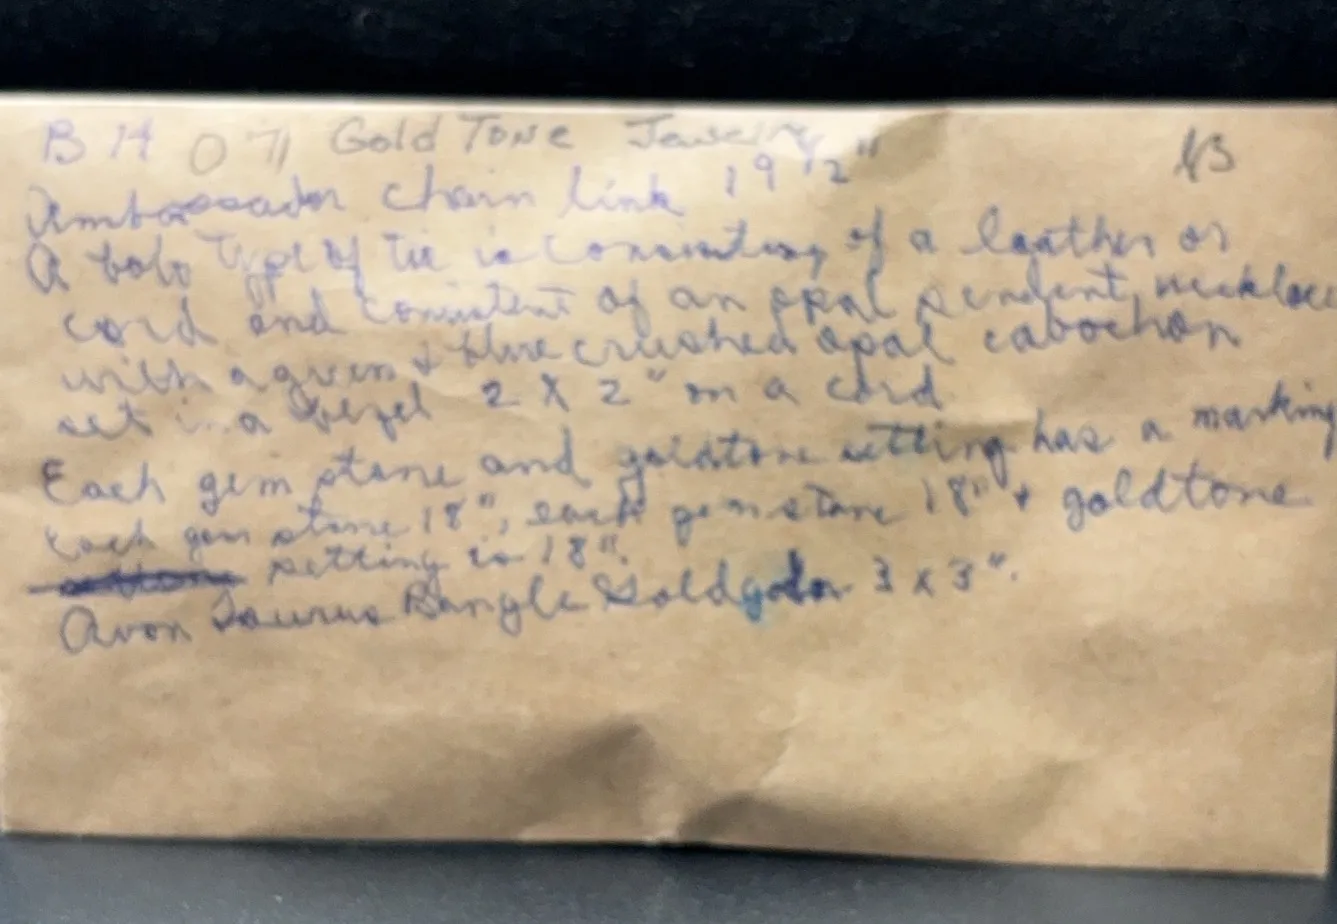 B 14 071 Gold Tone Jewelry
Ambassador chain link 19 1/2"
A bolo type of tie is consisting of a leather or
cord and consistent of an opal pendent necklace
with a green & blue crushed opal cabochon
set in a bezel 2 X 2" on a cord
Each gem stone and goldtone setting has a marking
Each gem stone 18", each gemstone 18" & goldtone
setting is 18".
Avon Taurus Bangle Gold 3 x 3".